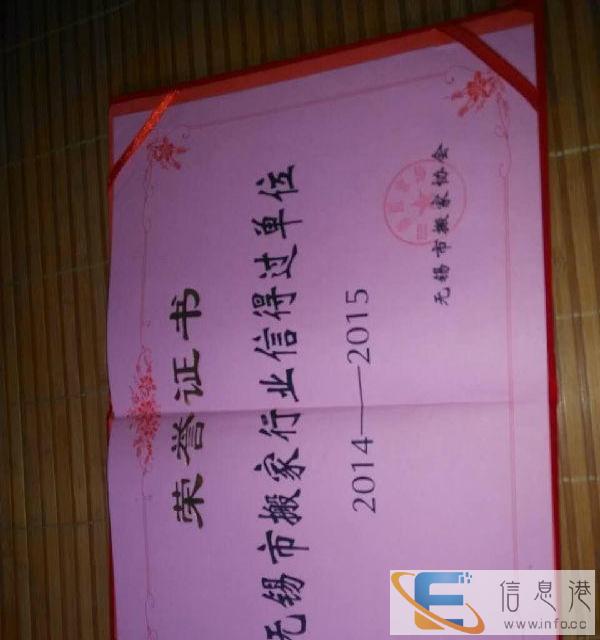 荣誉证书
无锡市搬家行业信得过单位
2014——2015
无锡市搬家协会
信息港
www.info.cc